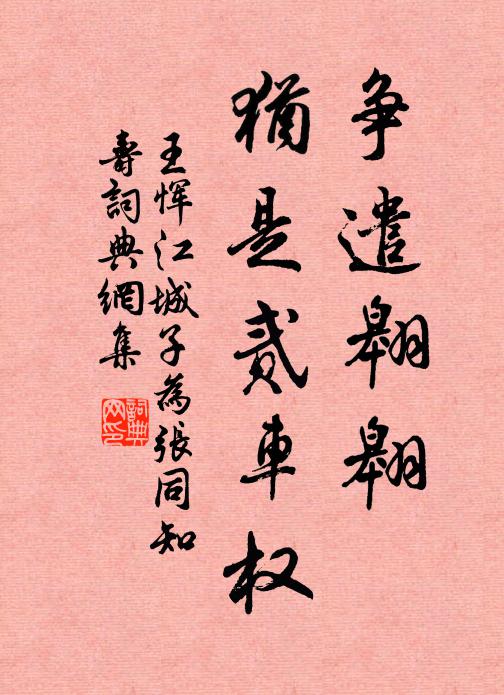 争遣翱翱
猶是貳車权
王恽江城子為張同知
壽詞典網集
詞典
网印